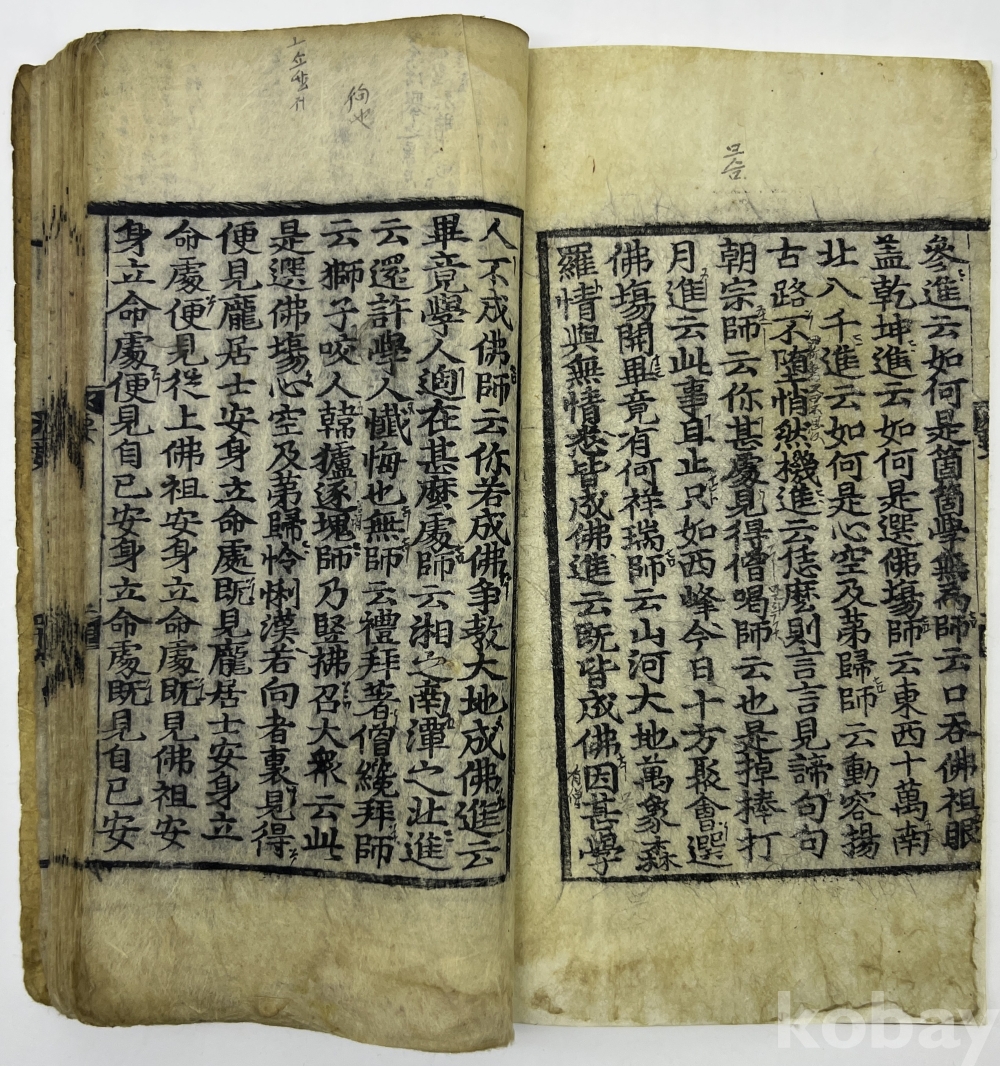 參進云如何是箇箇學無爲師云口吞佛祖眼
盖乾坤進云如何是選佛塲師云東西十萬南
北八千進云如何是心空及第歸師云動容揚
古路不墮悄然機進云恁麽則言言見諦句句
朝宗師云你甚處見得僧喝師云也是掉捧打
月進云此事且止只如西峰今日十方聚會選
佛塲開畢竟有何祥瑞師云山河大地萬象森
羅情與無情悉皆成佛進云既皆成佛因甚學
有僧
人不成佛師云你若成佛争教大地成佛進云
畢竟學人過在甚麽處師云湘之南潭之北進
云還許學人懺悔也無師云禮拜著僧纔拜師
云獅子咬人韓獹逐塊師乃竪拂召大衆云此
是選佛塲心空及第歸怜悧漢若向者裏見得
便見龐居士安身立命處既見龐居士安身立
命處便見從上佛祖安身立命處既見佛祖安
身立命處便見自己安身立命處既見自己安
kobay